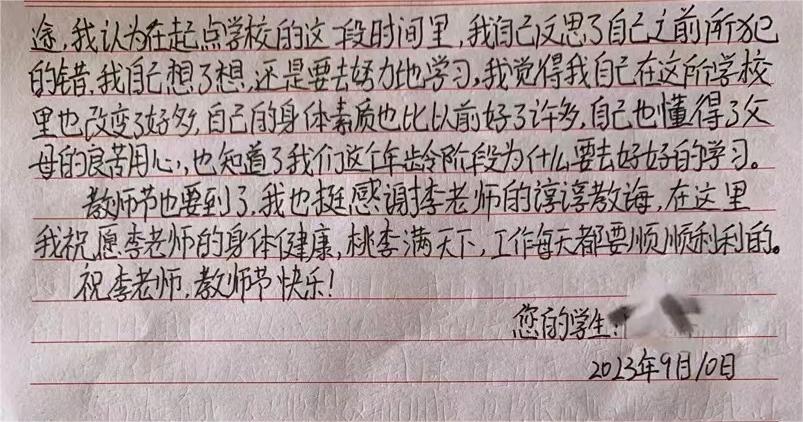 途,我认为在起点学校的这一段时间里,我自己反思了自己之前所犯
的错,我自己想了想,还是要去努力地学习,我觉得我自己在这所学校
里也改变了好多,自己的身体素质也比以前好了许多,自己也懂得了父
母的良苦用心,也知道了我们这个年龄阶段为什么要去好好的学习。
教师节也要到了,我也挺感谢李老师的谆谆教诲,在这里
我祝愿李老师的身体健康,桃李满天下,工作每天都要顺顺利利的。
祝李老师,教师节快乐!
您的学生:
2023年9月10日